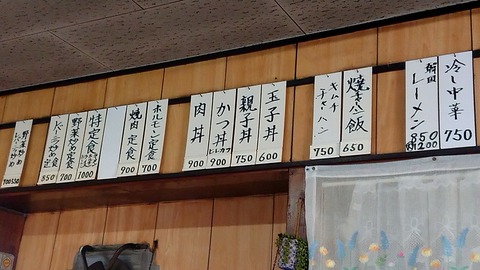 冷し中華
750
レーメン
850
焼き飯
650
キムチ
チャーハン
750
玉子丼
600
親子丼
750
かつ丼
900
肉丼
900
ホルモン定食
700
焼肉定食
900
特定食
1000
野菜炒め定食
700
レバーニラ炒め定食
850
野菜炒め